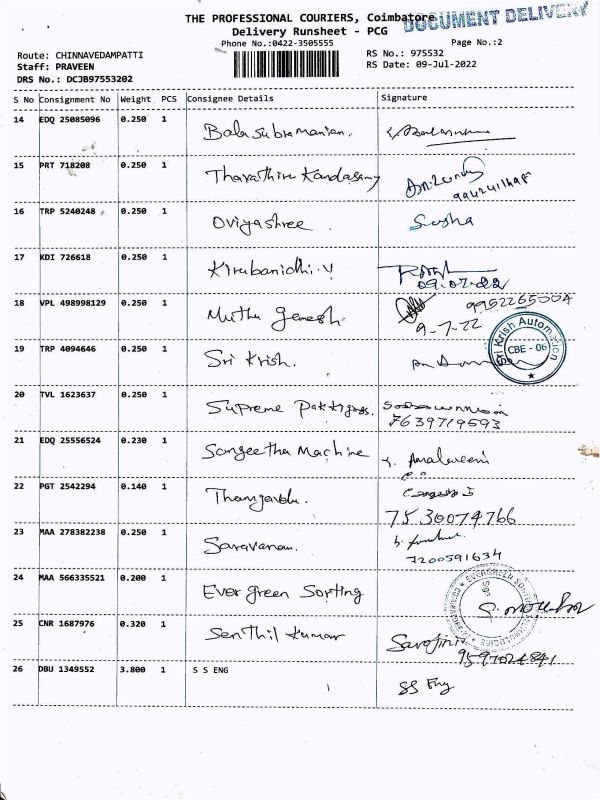 THE PROFESSIONAL COURIERS, Coimbatore
DOCUMENT DELIVERY
Delivery Runsheet - PCG
Phone No.:0422-3505555
Page No.:2
Route: CHINNAVEDAMPATTI
RS No.: 975532
Staff: PRAVEEN
RS Date: 09-Jul-2022
DRS No.: DCJB97553202
S No Consignment No Weight PCS Consignee Details Signature
14 EDQ 25085096 0.250 1 Balasubramanian.
15 PRT 718208 0.250 1 Tharathiru Kandasamy
16 TRP 5240248 0.250 1 Oviyashree. Susha
17 KDI 726618 0.250 1 Kirubanidhi.V
09.07.22
18 VPL 498998129 0.250 1 Muthu Ganesh. 9952265004
9-7-22
19 TRP 4094646 0.250 1 Sri Krish.
Sri Krish Automation
CBE - 06
20 TVL 1623637 0.250 1 Supreme
7639719593
21 EDQ 25556524 0.230 1 Sangeetha Machine Amalaveni
22 PGT 2542294 0.140 1 Thangavelu.
7530074766
23 MAA 278382238 0.250 1 Saravanan.
7200591634
24 MAA 566335521 0.200 1 Ever green Sorting
25 CNR 1687976 0.320 1 Senthil Kumar Sarojini
9597024841
26 DBU 1349552 3.800 1 S S ENG SS Eng